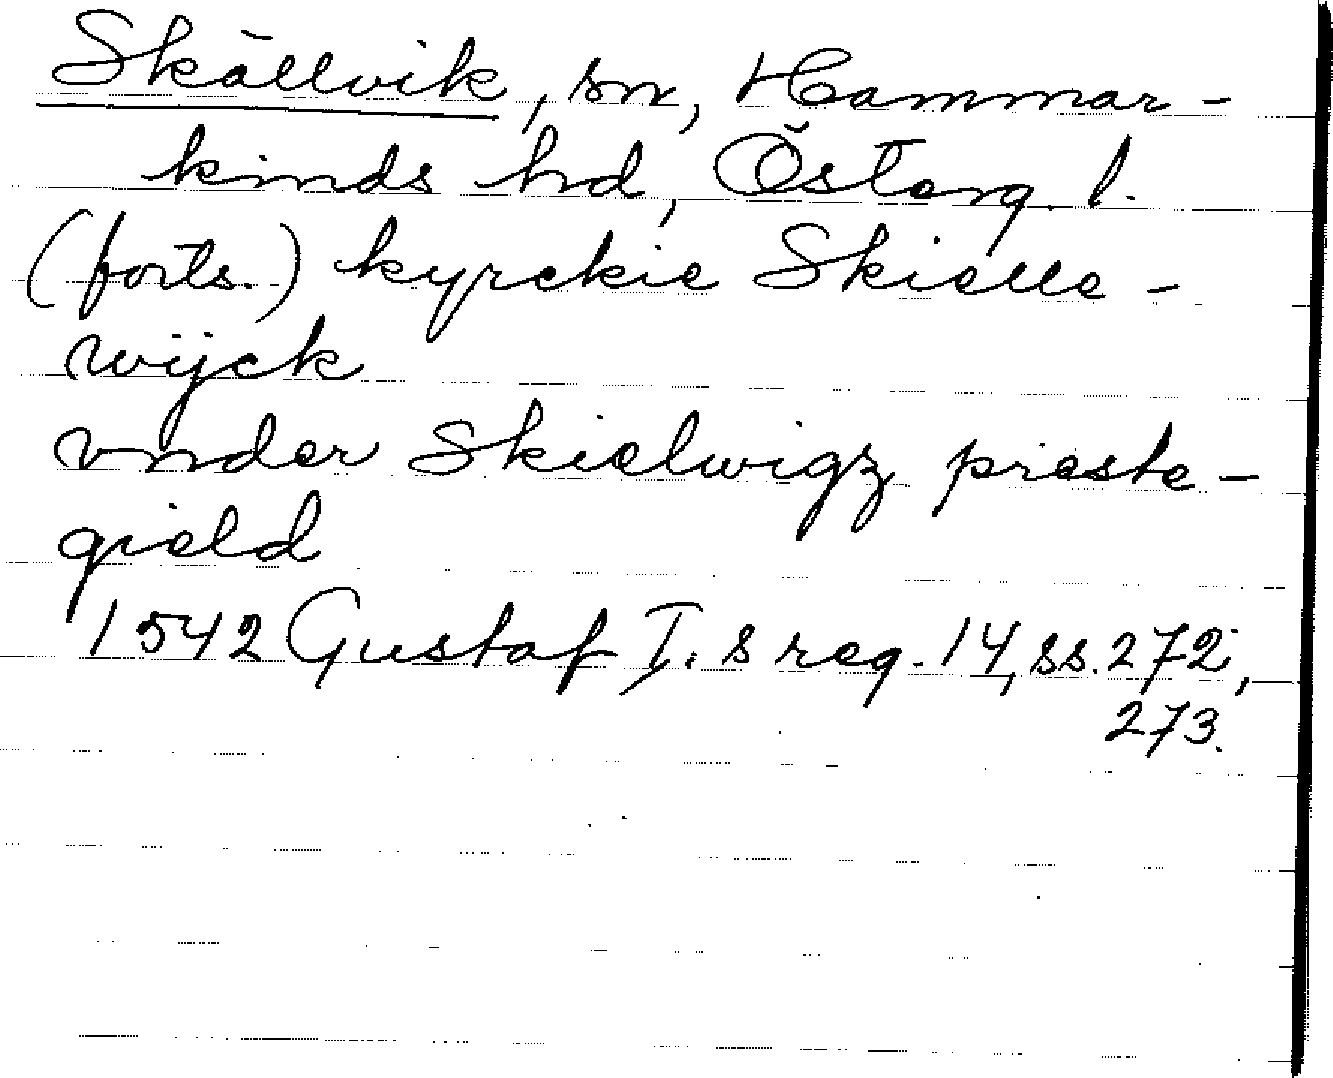 Skällvik, sn, Hammar-
kinds hd, Österg. l.
(forts.) kyrckie Skielle-
wijck
vnder Skielwigz preste-
gield
1542 Gustaf I:s reg. 14, ss. 272,
273.